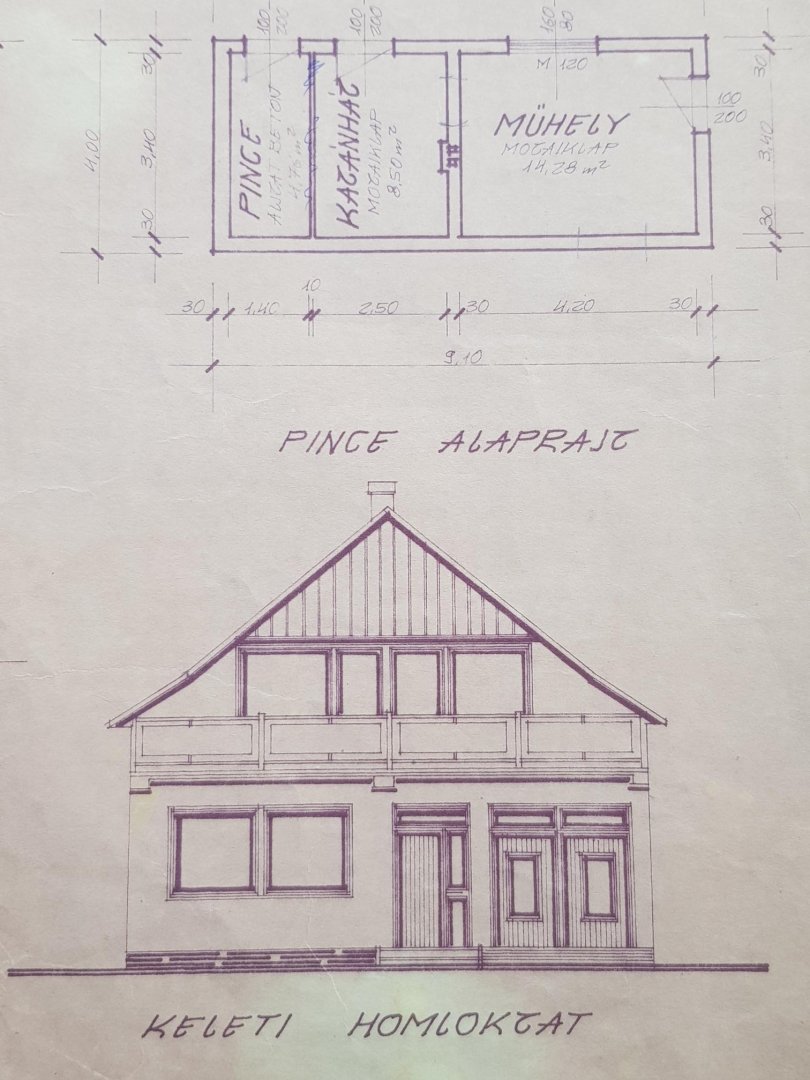 100
200
100
200
160
80
M 120
30
3,40
30
4,00
PINCE
ALJZAT BETON
4,76 m²
KAZÁNHÁZ
MOZAIKLAP
8,50 m²
MŰHELY
MOZAIKLAP
14,28 m²
100
200
30
3,40
30
30
1,40
10
2,50
30
4,20
30
9,10
PINCE ALAPRAJZ
KELETI HOMLOKZAT